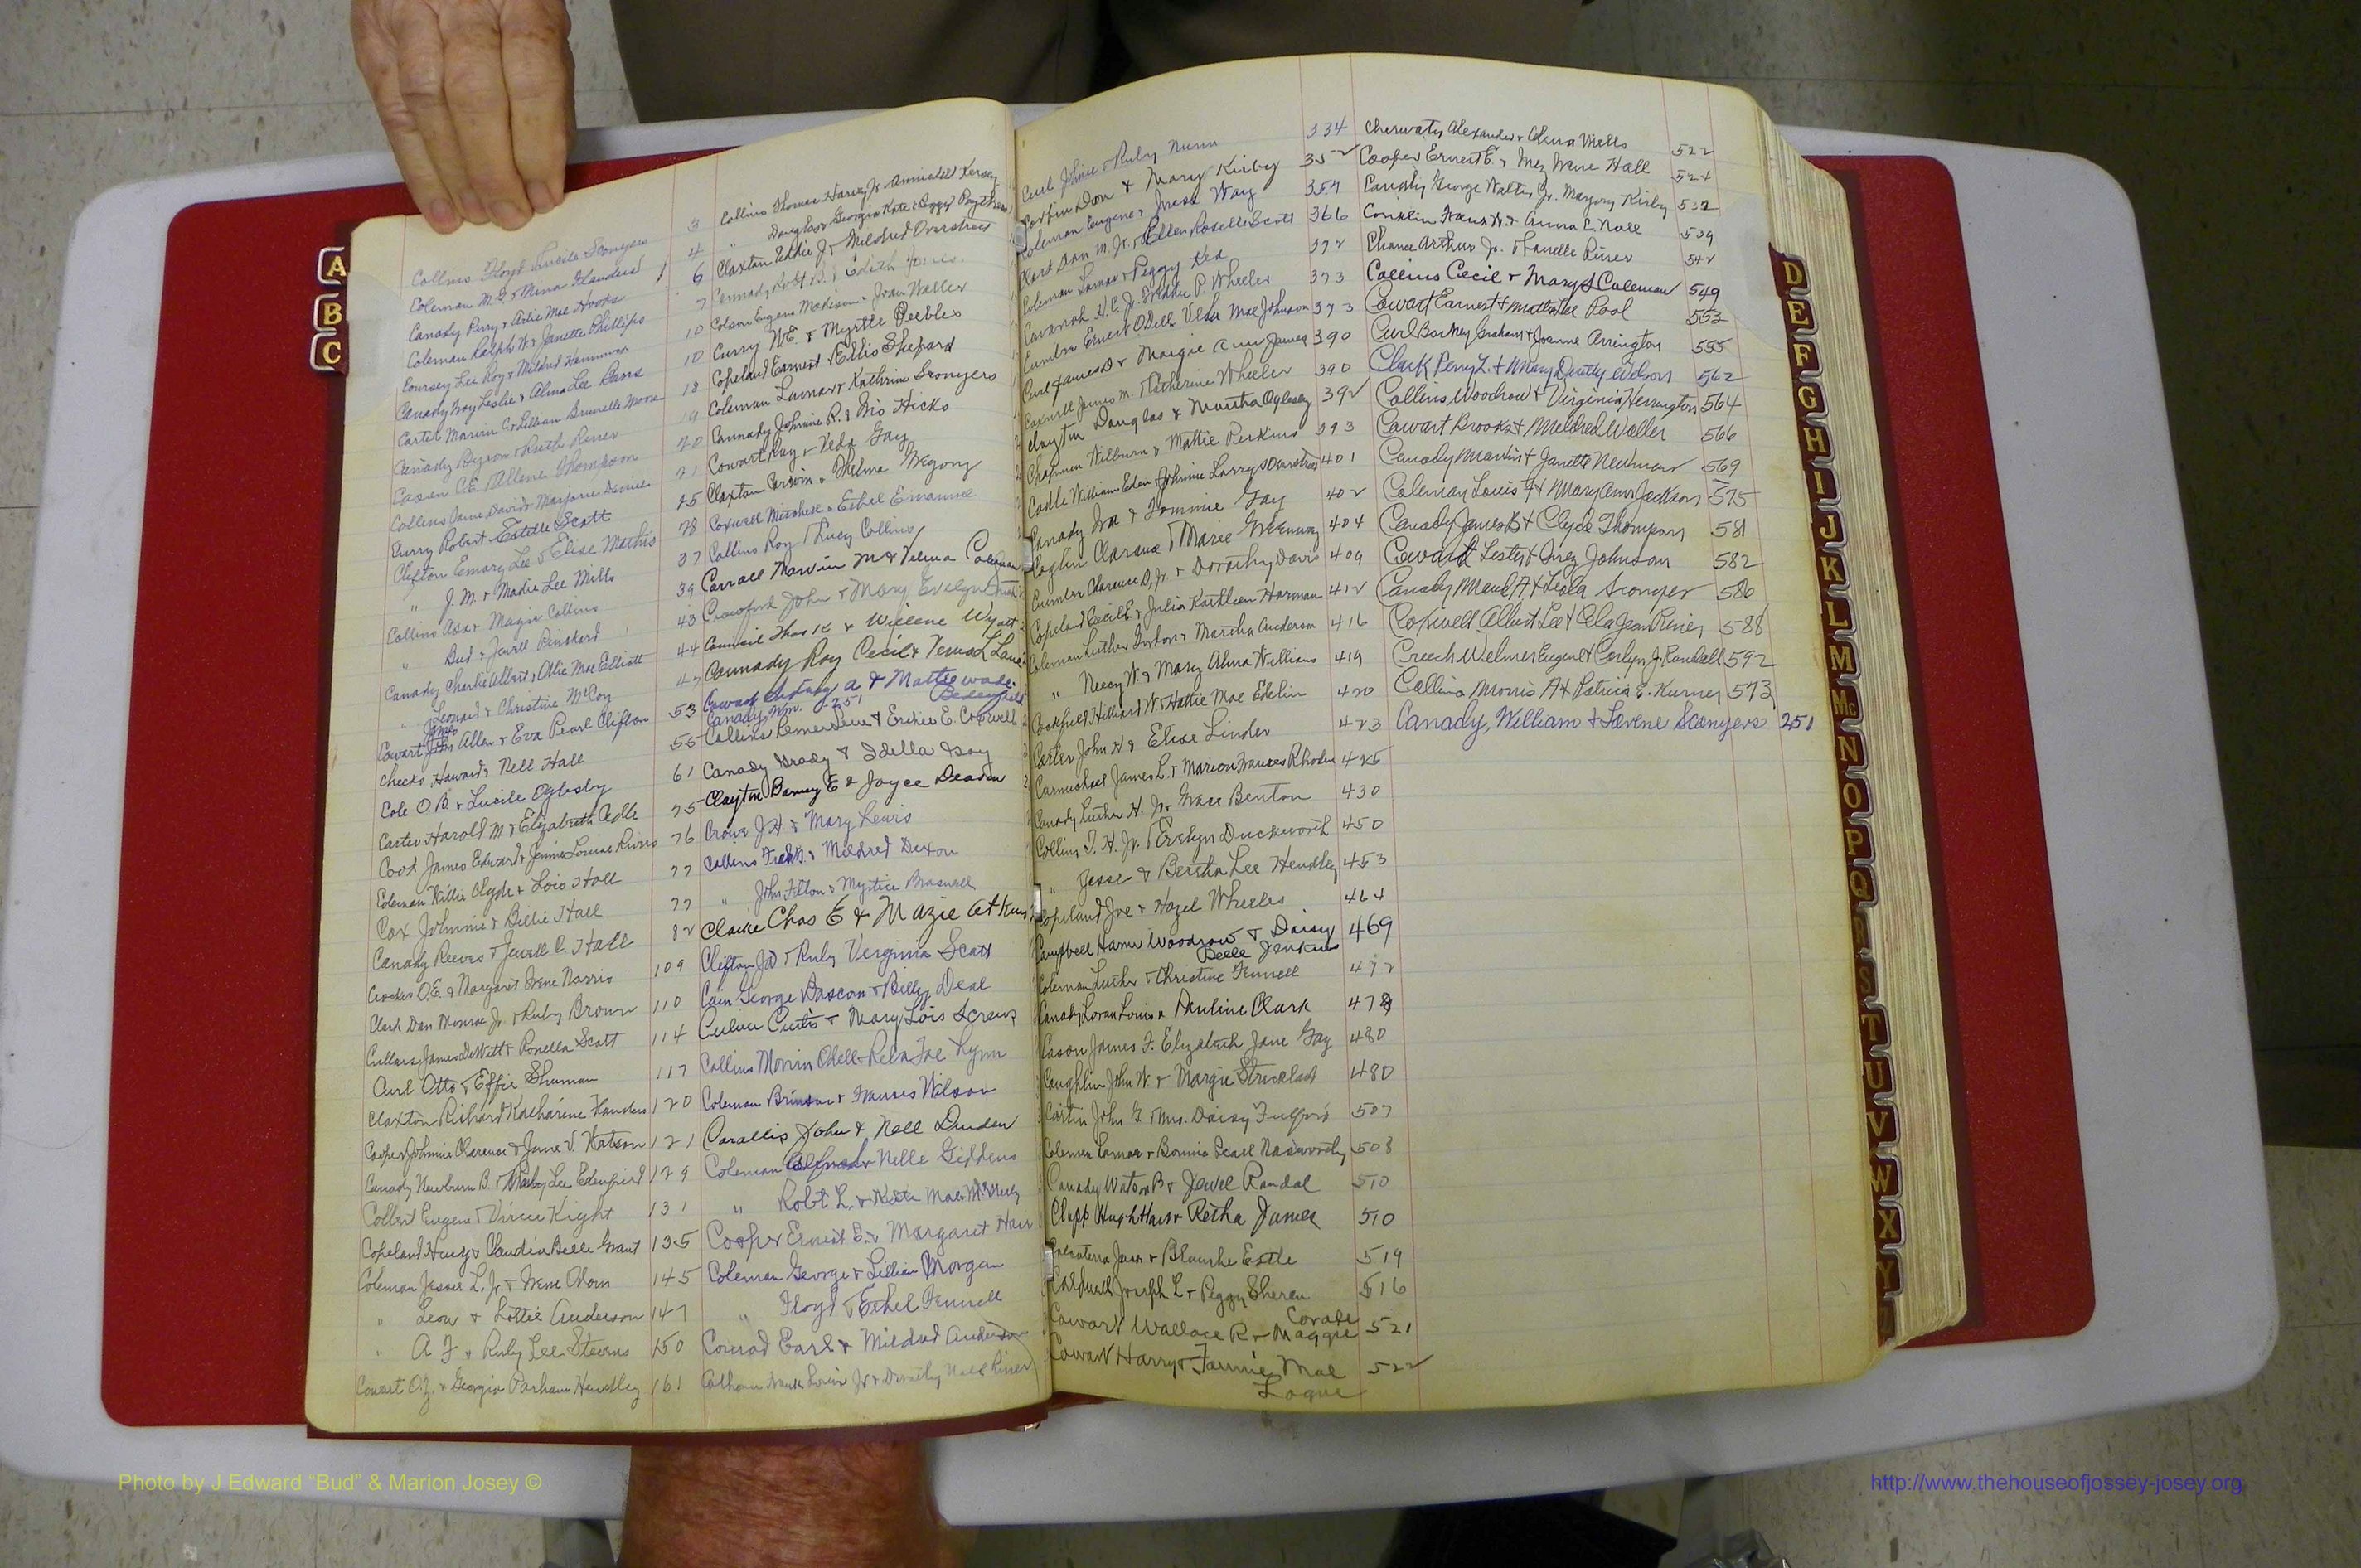 A
B
C
Collins Floyd Lucile Sconyers 3
Coleman M. G. & Mena Flanders 4
Canady Perry & Arlie Mae Hooks 6
Coleman Ralph W. & Janette Phillips 7
Coursey Lee Roy & Mildred Hammock 10
Canady Troy Leslie & Alma Lee Lane 10
Carter Marvin C. & Lillian Brunelle Moore 18
Canady Byron & Ruth Riner 19
Cason C.E. & Allene Thompson 20
Collins Jame David & Marjorie Daniel 21
Curry Robert Estelle Scott 25
Clifton Emory Lee & Elise Mathis 28
" J. M. & Madie Lee Mills 37
Collins Asa & Magie Collins 39
" Bud & Jewell Rinskard 43
Canady Charlie Albert & Allie Mae Elliott 44
" Leonard & Christine McCoy
Cowart James Allen & Eva Pearl Clifton 53
Cheeks Howard & Nell Hall 55
Cole O. B. & Lucile Oglesby 61
Carter Harold M & Elizabeth Cadle 75
Cook James Edward & Jennie Louise Rivers 76
Coleman Willie Clyde & Lois Hall 77
Cox Johnnie & Billie Hall 77
Canady Reeves & Jewell C. Hall 82
Crooker O.E. & Margaret Irene Norris 109
Clark Dan Monroe Jr. & Ruby Brown 110
Cullars James DeWitt & Ronella Scott 114
Curl Otto & Effie Shuman 117
Claxton Richard Katharine Flanders 120
Cooper Johnnie Clarence & Jane V. Watson 121
Canady Newburn B. & Ruby Lee Edenfield 129
Colbert Eugene & Vircie Kight 131
Copeland Henry & Claudia Belle Grant 135
Coleman Jesse L. Jr. & Irene Odom 145
" Leon & Lottie Anderson 147
" A F & Ruby Lee Stevens 150
Cowart O.Z. & Georgia Parham Hendley 161
Collins Thomas Harvey Jr. Annie Nell Kersey
" Douglas & Georgia Kate
Claxton Eddie Jr & Mildred Overstreet
Cannady Robt B. & Edith Jones
Colson Eugene Madison & Joan Waller
Curry W.E. & Myrtle Peebles
Copeland Earnest & Ellis Shepard
Coleman Lamar & Kathrine Sconyers
Cannady Johnnie R. & Iris Hicks
Cowart Ray & Veda Gay
Claxton Corwin & Thelma Gregory
Coxwell Mitchell & Ethel Emanuel
Collins Roy & Lucy Collins
Carroll Marvin M & Velma Coleman
Crawford John & Mary Evelyn
Council Thos K & Willene Wyatt
Cannady Roy Cecil & Lane
Cowart & Mattie Wade
Canady, Wm. 251
Collins & Erchie E. Coxwell
Canady Grady & Idella Gay
Clayton Barney E & Joyce Deason
Crowe J.H & Mary Lewis
Collins Fred B. & Mildred Dixon
" John Filton & Myrtice Braswell
Clarke Chas E & Mazie Atkins
Clifton J D & Ruby Verginia Scott
Cain George Dascom & Billy Deal
Culver Curtis & Mary Lois Screws
Collins Morrin Odell & Rela Fae Lynn
Coleman Brinson & Frances Wilson
Corallis John & Nell Durden
Coleman Alfred & Nelle Giddens
" Robt L. & Kate Mae McNeely
Cooper Ernest E. & Margaret Hair
Coleman George & Lillian Morgan
" Floyd & Ethel Fennell
Conrad Earl & Mildred Anderson
Calhoun Frank Jr & Dorothy Nell Riner
Curl Johnie & Ruby Nunn 334
Corbin Don & Mary Kirby 352
Coleman Eugene & Inez Way 359
Clark Dan M. Jr. & Ellen Roselle Scott 366
Coleman Lamar & Peggy Kea 372
Cavanah H. C. Jr. Freddie P. Wheeler 373
Cumbie Ernest Odell & Velda Mae Johnson 373
Curl James D & Margie Ann James 390
Coxwell James M. & Catherine Wheeler 390
Clayton Douglas & Martha Oglesby 392
Chapman Wilburn & Mattie Perkins 393
Cadle William Eden & Johnnie Overstreet 401
Canady Ira & Tommie Gay 402
Coghlin Clarence & Marie Greenway 404
Cumbie Clarence D, Jr. & Dorothy Davis 409
Copeland Cecil E & Julia Kathleen Harmon 412
Coleman Luther Inston & Martha Anderson 416
" Neecy W. & Mary Alma Williams 419
Cockfield Hilliard W. & Hattie Mae Edelin 420
Carter John H & Elise Linder 423
Carmichael James L. & Marion Frances Rhoden 425
Canady Luther H. Jr & Grace Benton 430
Collins T. H. Jr. & Evelyn Duckworth 450
" Jesse & Bertha Lee Hendley 453
Copeland Joe & Hazel Wheeler 464
Campbell Woodrow & Daisy Belle Jenkins 469
Coleman Luther & Christine Fennell 472
Canady Loran Louis & Pauline Clark 478
Cason James F. Elizabeth Jane Gay 480
Coughlin John W. & Margie Strickland 480
Curtin John G & Mrs. Daisy Fulford 507
Coleman Lamar & Bonnie Pearl Nasworthy 508
Canady Watson B & Jewel Randal 510
Clapp Hugh Hair & Retha James 510
& Blanche Estle 519
Caldwell Joseph L & Peggy Sheran 516
Cowart Wallace R. & Maggie Corale 521
Cowart Harry & Fannie Mae Logue 522
Cherwaty Alexander & Alma Mills 522
Cooper Ernest E. & Inez Irene Hall 524
Canady George Walter Jr. Margory Kirby 532
Conklin Frank W. & Anna E. Nall 539
Chance Arthur Jr. & Fanelle Riner 542
Collins Cecil & Mary S Coleman 549
Cowart Earnest & Mattie Lee Pool 553
Curl Barney Graham & Joanne Arrington 555
Clark Perry L. & Mary Dretty Wilson 562
Collins Woodrow & Virginia Herrington 564
Cowart Brooks & Mildred Waller 566
Canady Marvin & Janette Newman 569
Coleman Louis F & Mary Ann Jackson 575
Canady James B & Clyde Thompson 581
Cowart Lester & Inez Johnson 582
Canady Maud A & Leola Scongers 586
Coxwell Albert Lee & Cela Jean Riner 588
Creech Welmer Eugene & Carlyn J. Randall 592
Collins Morris A & Patricia E. Kurney 593
Canady, William & Lavene Scongers 251
D
E
F
G
H
I
J
K
L
M
Mc
N
O
P
Q
R
S
T
U
V
W
X
Y
Photo by J Edward “Bud” & Marion Josey ©
http://www.thehouseofjossey-josey.org